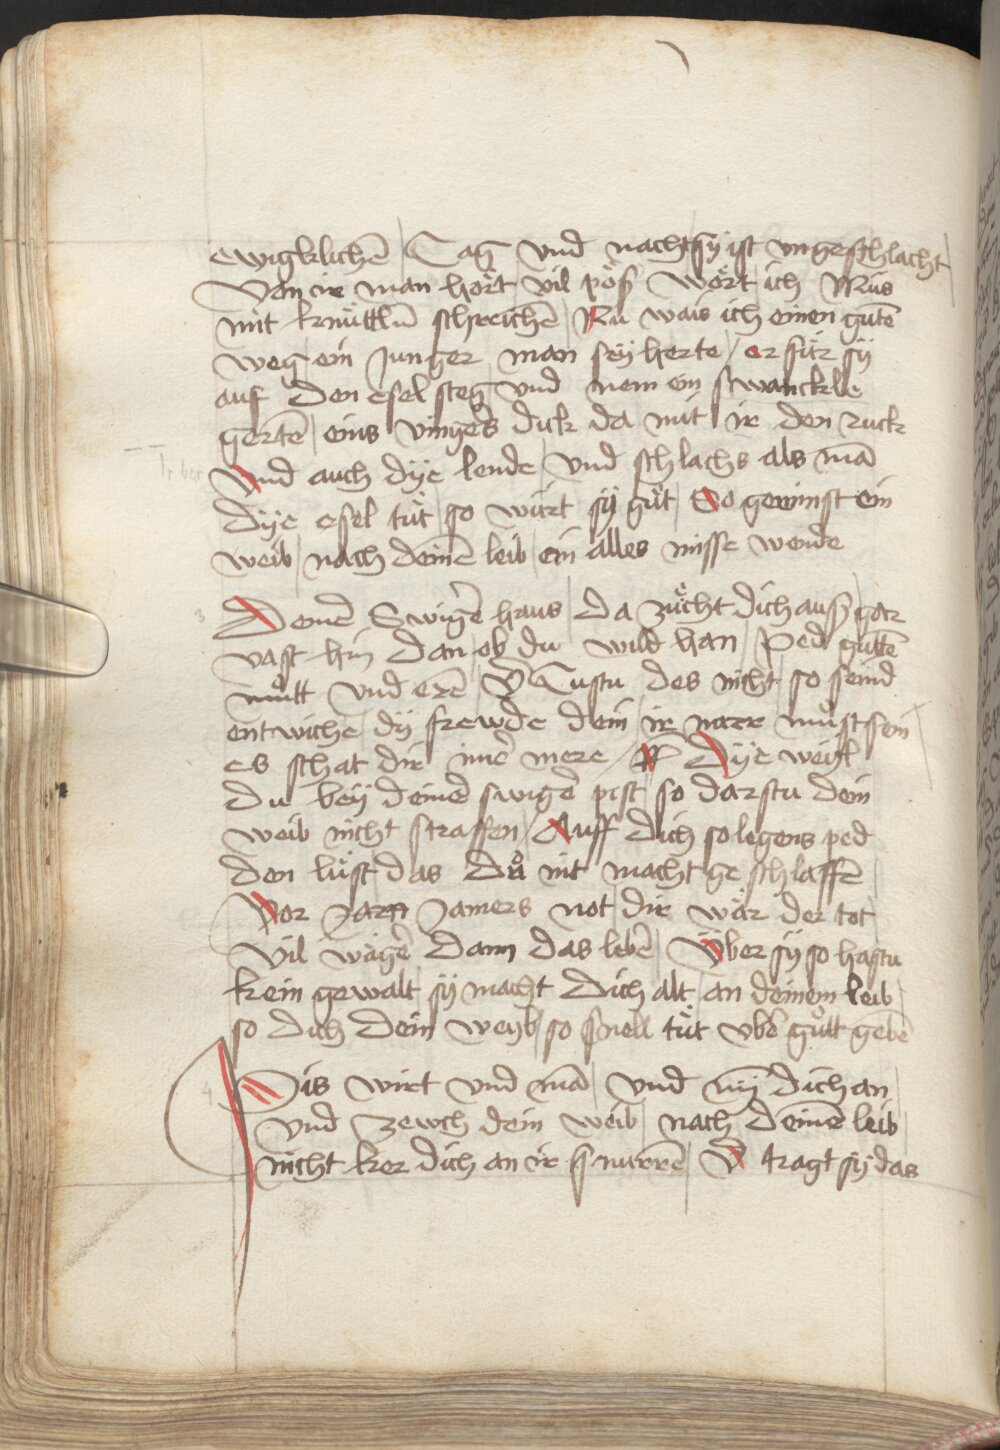 ewigklichē | Tag vnd nacht sÿ ist vngeschlacht
Von ir man hört vil pös wört ich Mus
mit knüttlū schreichē | Nu wais ich einen gutē
weg ein Junger man seÿ herte / er für sÿ
auf den esel steg vnd nem ein swanckle
gertē | eins vingers dick da mit ir den ruck
Vnd auch dÿe lende | vnd schlachs als mā
dÿe esel tut | so wirt sÿ gut | So gewinst ein
weib | nach deinē leib | ein alles misse wende
Deinē Swigē haus | da zücht dich auß gar
vast hin dan ob du wild han | Ped gutē
mutt vnd erē | Vn̄ Tustu des nicht | so seind
entwiche | dÿ frewde dein | ir narr must sein
es schat dir ime mere / R Dÿe weÿl
du beÿ deinē swigē pist | so darstu dein
weib nicht straffen | Auff dich so legens ped
den lust das du nit macht ge schlaffē
Vor zarn Jamers not | dir wär der tot
vil wägē dann das lebē | Über sÿ so hastu
kein gewalt | sÿ macht dich alt | an deinem leib
so dich dein weyb | so snell tut vbē gult gebē
Bis wirt vnd mā | vnd nÿ dich an
vnd zewch dein weib | nach deinē leib
nicht ker dich an ir snurrē | V̄ tragt sÿ das